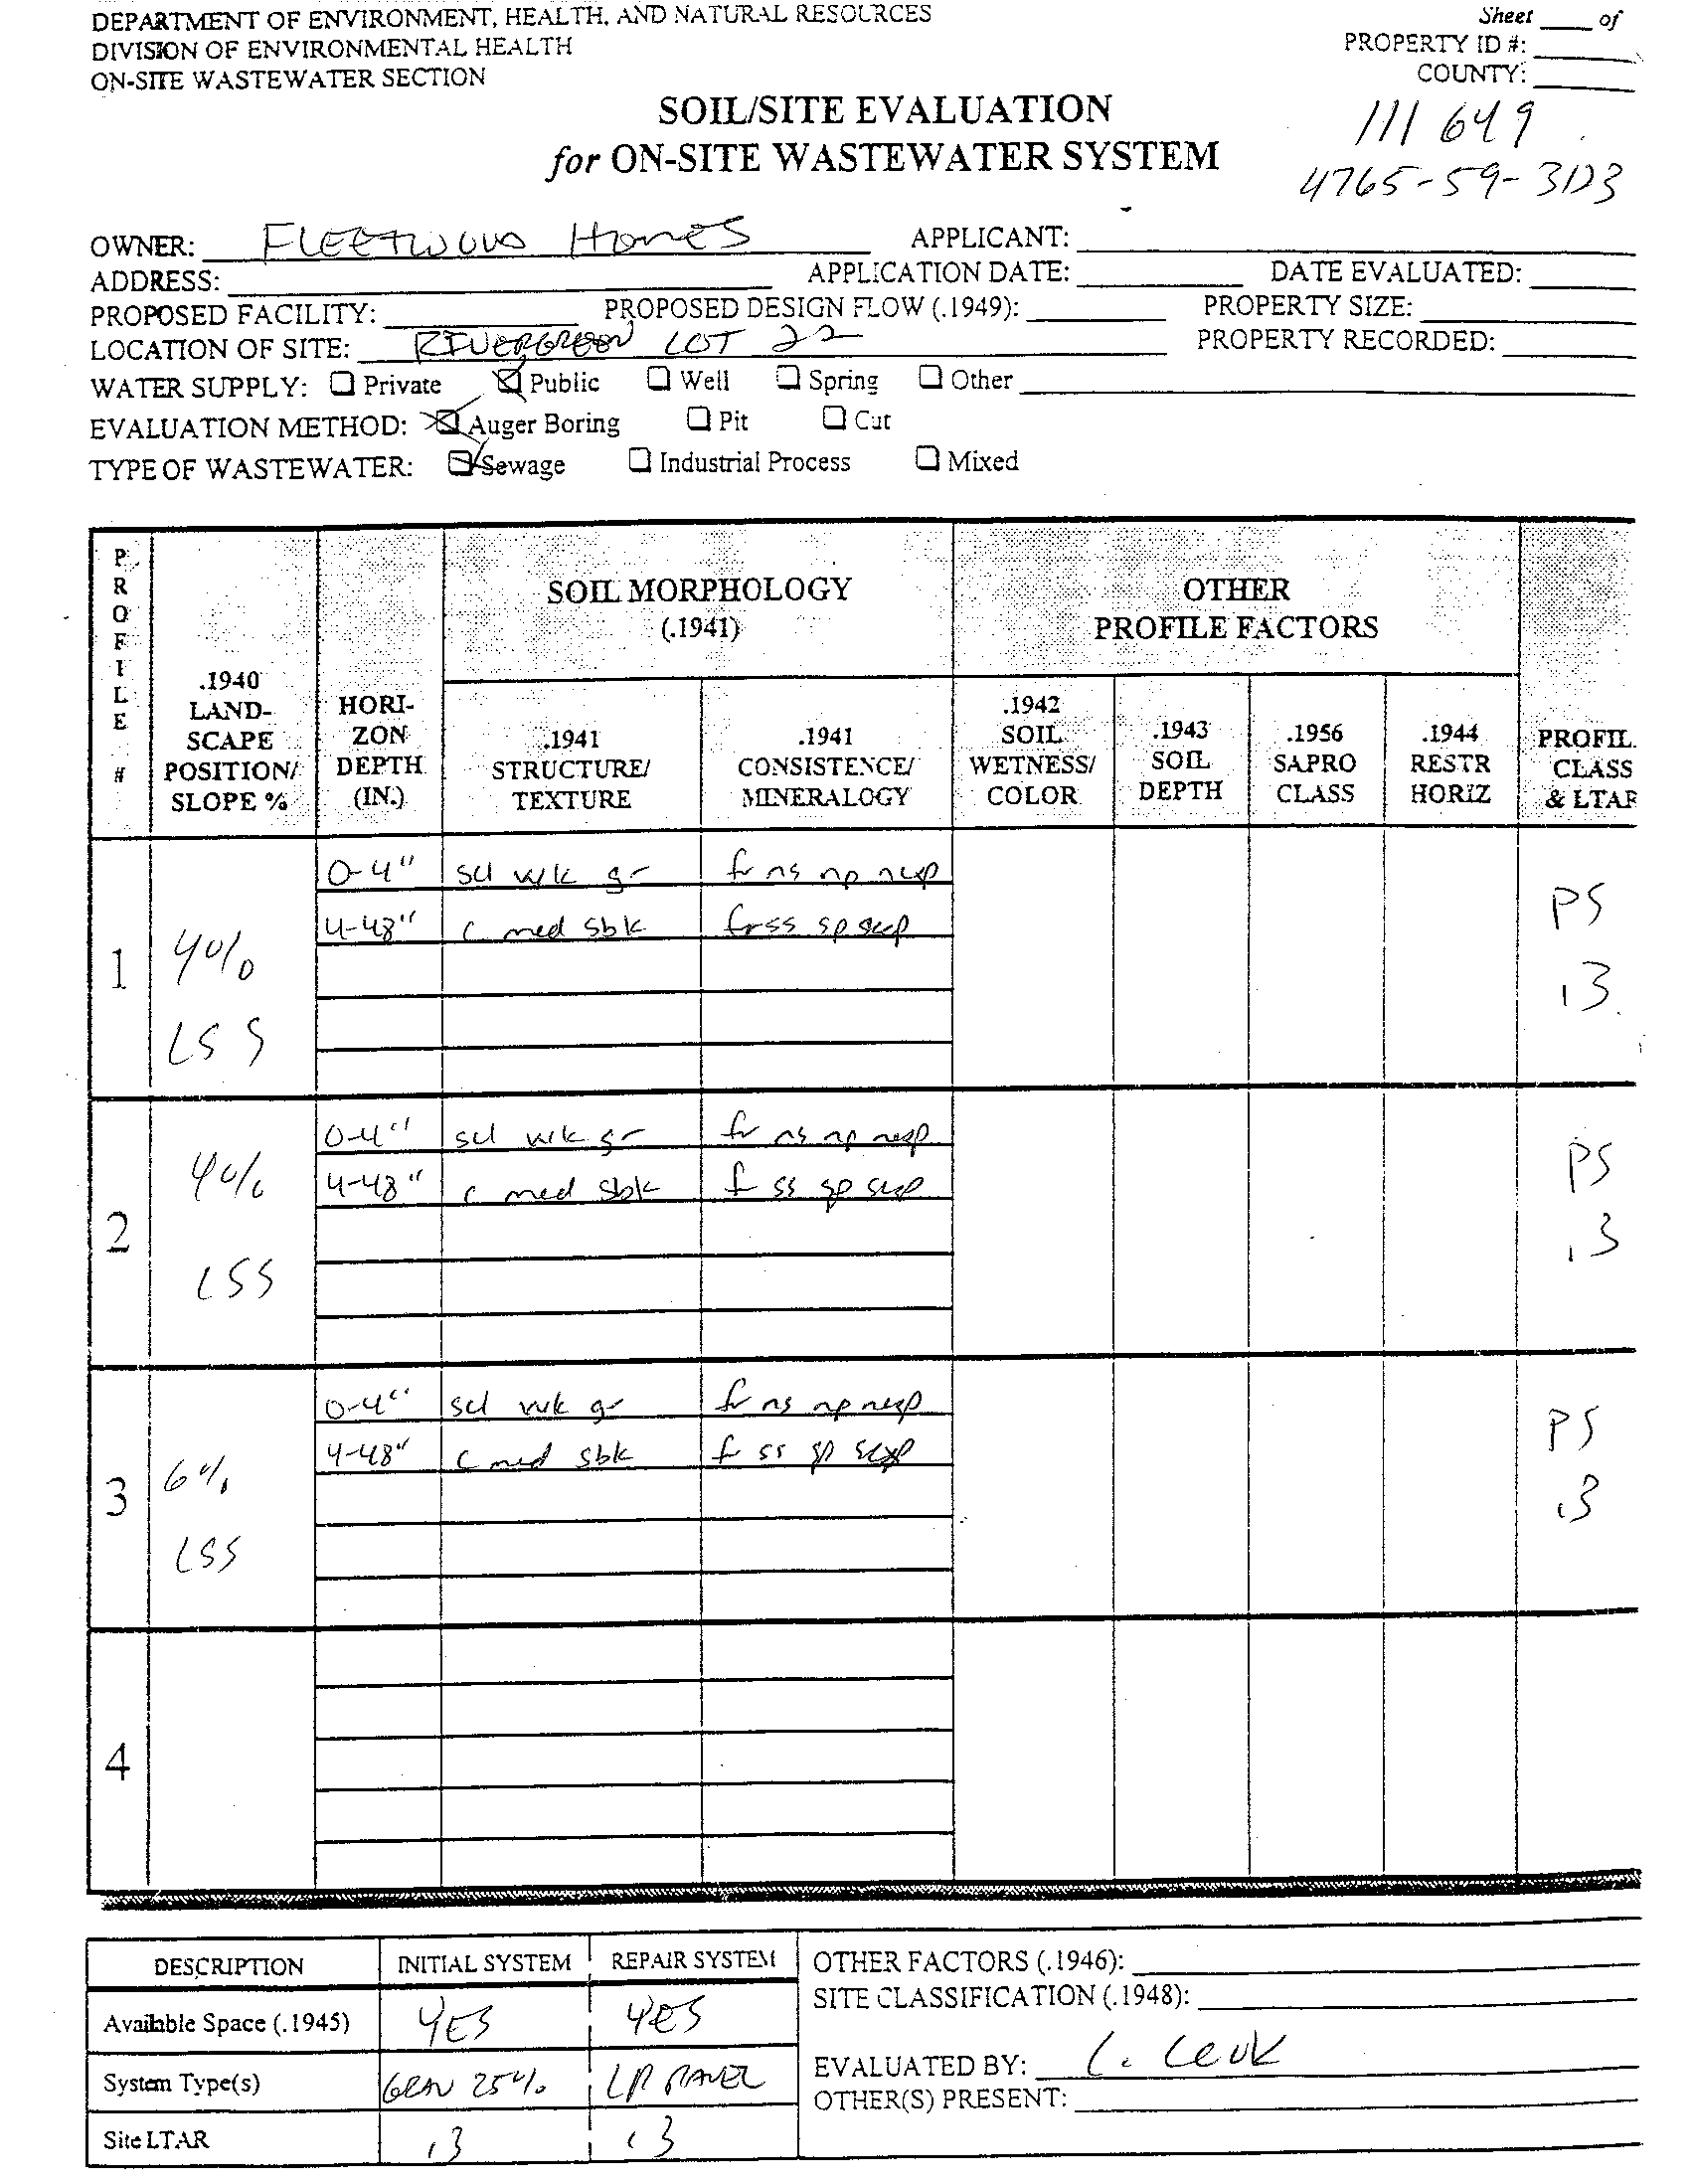 DEPARTMENT OF ENVIRONMENT, HEALTH, AND NATURAL RESOURCES
DIVISION OF ENVIRONMENTAL HEALTH
ON-SITE WASTEWATER SECTION
Sheet ____ of
PROPERTY ID #:
COUNTY:
SOIL/SITE EVALUATION
for ON-SITE WASTEWATER SYSTEM
111 649
4765-59-
OWNER: FLEETWOOD HOMES APPLICANT:
ADDRESS: APPLICATION DATE: DATE EVALUATED:
PROPOSED FACILITY: PROPOSED DESIGN FLOW (.1949): PROPERTY SIZE:
LOCATION OF SITE: RIVERGREEN LOT 22 PROPERTY RECORDED:
WATER SUPPLY: Private Public Well Spring Other
EVALUATION METHOD: Auger Boring Pit Cut
TYPE OF WASTEWATER: Sewage Industrial Process Mixed
PROFILE #
.1940 LAND-SCAPE POSITION/ SLOPE %
HORI-ZON DEPTH (IN.)
SOIL MORPHOLOGY (.1941)
.1941 STRUCTURE/ TEXTURE
.1941 CONSISTENCE/ MINERALOGY
OTHER PROFILE FACTORS
.1942 SOIL WETNESS/ COLOR
.1943 SOIL DEPTH
.1956 SAPRO CLASS
.1944 RESTR HORIZ
PROFIL CLASS & LTAR
1 4% LSS
0-4" scl wk gr fr ns np nexp
4-48" c med sbk fr ss sp sexp
PS .3
2 4% LSS
0-4" scl wk gr fr ns np nexp
4-48" c med sbk f ss sp sexp
PS .3
3 6% LSS
0-4" scl wk gr fr ns np nexp
4-48" c med sbk f ss sp sexp
PS .3
4
DESCRIPTION INITIAL SYSTEM REPAIR SYSTEM
Available Space (.1945) YES YES
System Type(s) 25%
Site LTAR .3 .3
OTHER FACTORS (.1946):
SITE CLASSIFICATION (.1948):
EVALUATED BY:
OTHER(S) PRESENT: